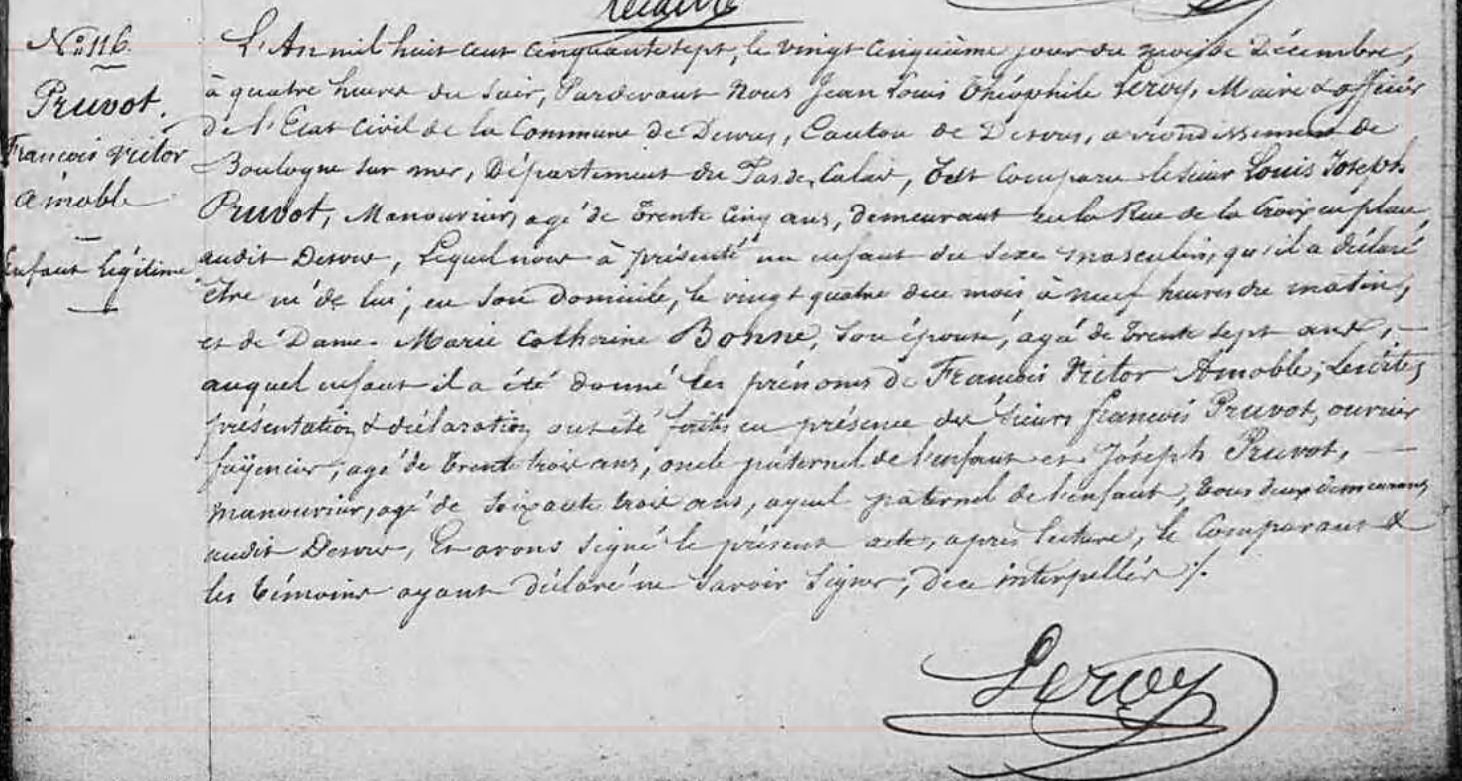 Nº 116.
Pruvot.
François Victor
Amoble
Enfant légitime
L'An mil huit cent cinquante sept, le vingt cinquième jour du mois de Décembre,
à quatre heures du soir, Pardevant Nous Jean Louis Théophile Leroy, Maire & officier
de l'Etat Civil de la Commune de Desvres, Canton de Desvres, arrondissement de
Boulogne sur mer, Département du Pas de Calais, Est comparu le sieur Louis Joseph
Pruvot, Manouvrier, agé de trente cinq ans, demeurant en la Rue de la Croix en place,
audit Desvres, Lequel nous à présenté un enfant du sexe masculin, qu'il a déclaré
être né de lui, en son domicile, le vingt quatre du mois à neuf heures du matin,
et de Dame Marie Catherine Bonne, son épouse, agée de trente sept ans, —
auquel enfant il a été donné les prénoms de François Victor Amoble; Lesdites
présentation & déclaration ont été faites en présence des sieurs françois Pruvot, ouvrier
fayencier, agé de trente trois ans, oncle paternel de l'enfant et Joseph Pruvot, —
manouvrier, agé de soixante trois ans, ayeul paternel de l'enfant, tous deux demeurans
audit Desvres, Et avons signé le présent acte, après lecture, le Comparant &
les témoins ayant déclaré ne savoir signer, de ce interpellés ./.
Leroy